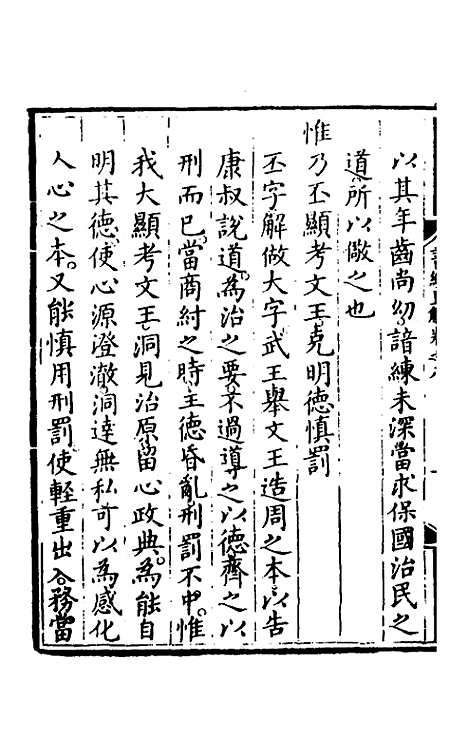 以其年齒尚幼諳練未深當求保國治民之
道所以儆之也
惟乃丕顯考文王克明德慎罰
丕字解做大字武王舉文王造周之本以告
康叔說道為治之要不過導之以德齊之以
刑而已當商紂之時主德昏亂刑罰不中惟
我大顯考文王洞見治原留心政典為能自
明其德使心源澄澈洞達無私可以為感化
人心之本又能慎用刑罰使輕重出入務當